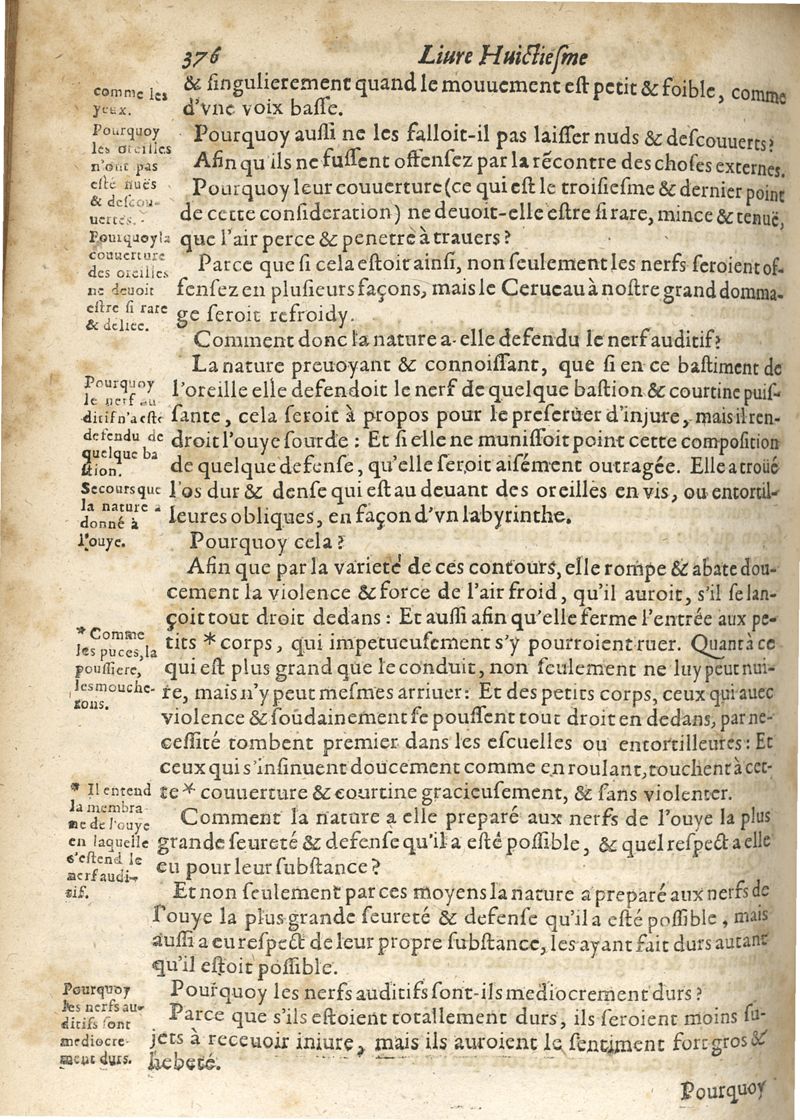 376 Liure Huictiesme
& singulierement quand le mouuement est petit & foible, comme
d'vne voix basse.
Pourquoy aussi ne les falloit-il pas laisser nuds & descouuerts?
Afin qu'ils ne fussent offensez par la récontre des choses externes.
Pourquoy leur couuerture (ce qui est le troisiesme & dernier point
de cette consideration) ne deuoit-elle estre si rare, mince & tenuë,
que l'air perce & penetre à trauers?
Parce que si cela estoit ainsi, non seulement les nerfs seroient of-
fensez en plusieurs façons, mais le Cerueau à nostre grand domma-
ge seroit refroidy.
Comment donc la nature a-elle defendu le nerf auditif?
La nature preuoyant & connoissant, que si en ce bastiment de
l'oreille elle defendoit le nerf de quelque bastion & courtine puis-
sante, cela seroit à propos pour le preseruer d'injure, mais il ren-
droit l'ouye sourde: Et si elle ne munissoit point cette composition
de quelque defense, qu'elle seroit aisément outragée. Elle a trouë
l'os dur & dense qui est au deuant des oreilles en vis, ou entortil-
leures obliques, en façon d'vn labyrinthe.
Pourquoy cela?
Afin que par la varieté de ces contours, elle rompe & abate dou-
cement la violence & force de l'air froid, qu'il auroit, s'il se lan-
çoit tout droit dedans: Et aussi afin qu'elle ferme l'entrée aux pe-
tits * corps, qui impetueusement s'y pourroient ruer. Quant à ce
qui est plus grand que le conduit, non seulement ne luy peut nui-
re, mais n'y peut mesmes arriuer: Et des petits corps, ceux qui auec
violence & soudainement se poussent tout droit en dedans, par ne-
cessité tombent premier dans les escuelles ou entortilleures: Et
ceux qui s'insinuent doucement comme en roulant, touchent à cet-
te * couuerture & courtine gracieusement, & sans violenter.
Comment la nature a elle preparé aux nerfs de l'ouye la plus
grande seureté & defense qu'il a esté possible, & quel respect a elle
eu pour leur substance?
Et non seulement par ces moyens la nature a preparé aux nerfs de
l'ouye la plus grande seureté & defense qu'il a esté possible, mais
aussi a eu respect de leur propre substance, les ayant fait durs autant
qu'il estoit possible.
Pourquoy les nerfs auditifs sont-ils mediocrement durs?
Parce que s'ils estoient totallement durs, ils seroient moins su-
jets à receuoir iniure, mais ils auroient le sentiment fort gros &
hebeté.
Pourquoy
comme les
yeux.
Pourquoy
les oreilles
n'ont pas
esté nuës
& descou-
uertes.
Pourquoy la
couuerture
des oreilles
ne deuoit
estre si rare
& deliee.
Pourquoy
le nerf au
ditif n'a esté
defendu de
quelque ba
stion.
Secours que
la nature a
donné à
l'ouye.
* Comme
les puces, la
poussiere,
les mouche-
rons.
* Il entend
la membra-
ne de l'ouye
en laquelle
s'estend le
nerf audi-
tif.
Pourquoy
les nerfs au-
ditifs sont
mediocre-
ment durs.